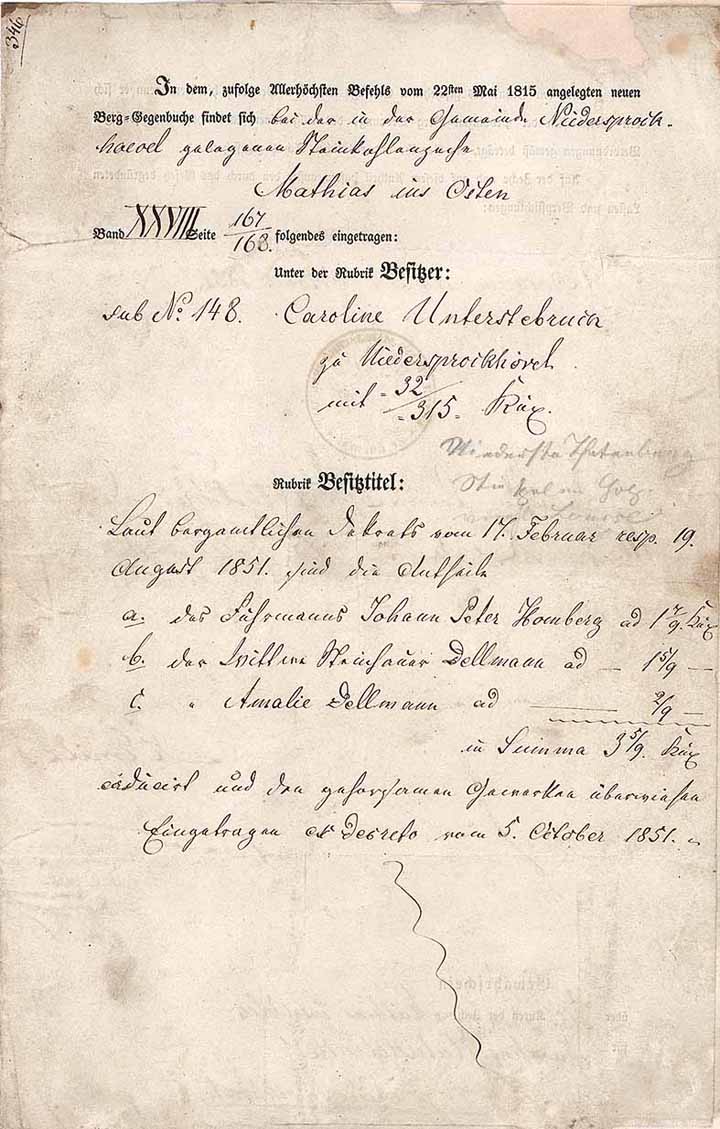 346
In dem, zufolge Allerhöchsten Befehls vom 22sten Mai 1815 angelegten neuen
Berg-Gegenbuche findet sich bei der in der Gemeinde Niedersprock-
haevel gelegenen Steinkohlenzeche
Mathias ins Osten
Band XXVIII Seite 167/168. folgendes eingetragen:
Unter der Rubrik Besitzer:
sub No. 148. Caroline Unterstebruch
zu Niedersprockhövel
mit 32/315 Kux.
Rubrik Besitztitel:
Laut bergamtlichen Dekrets vom 17. Februar resp. 19.
August 1851. sind die Antheile
a. des Fuhrmanns Johann Peter Homberg ad 1 7/9. Kux
b. der Wittwe Steinhauer Dellmann ad — 1 5/9 —
c. " Amalie Dellmann ad — 2/9 —
in Summa 3 5/9. Kux
caducirt und den gehorsamen Gewerken überwiesen
Eingetragen ex decreto vom 5. October 1851.